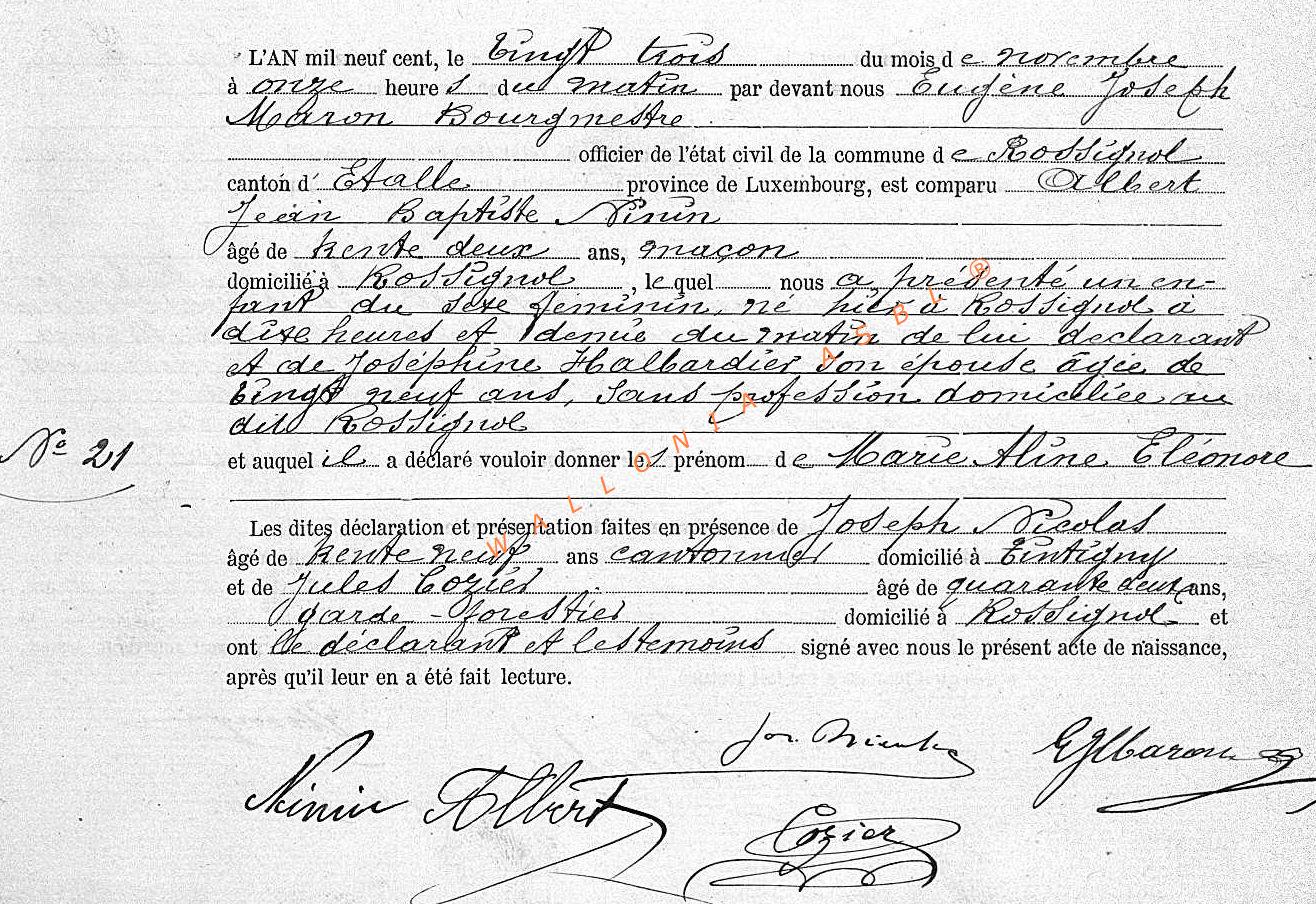 L'AN mil neuf cent, le vingt trois du mois de novembre
à onze heures du matin par devant nous Eugène Joseph
Maron Bourgmestre
officier de l'état civil de la commune de Rossignol
canton d' Etalle province de Luxembourg, est comparu Albert
Jean Baptiste Ninin
âgé de trente deux ans, maçon
domicilié à Rossignol, lequel nous a présenté un en-
fant du sexe feminin, né hier à Rossignol à
dixe heures et demie du matin de lui déclarant
et de Joséphine Halbardier son épouse âgée de
vingt neuf ans, sans profession domiciliée au
dit Rossignol
N° 21
et auquel il a déclaré vouloir donner les prénom de Marie Aline Eléonore
Les dites déclaration et présentation faites en présence de Joseph Nicolas
âgé de trente neuf ans cantonnier domicilié à Tintigny
et de Jules Cozier âgé de quarante deux ans,
garde-forestier domicilié à Rossignol et
ont le déclarant et les temoins signé avec nous le présent acte de naissance,
après qu'il leur en a été fait lecture.
Jos. Nicolas EJMaron
Ninin Albert
Cozier
WALLONIA ASBL ®